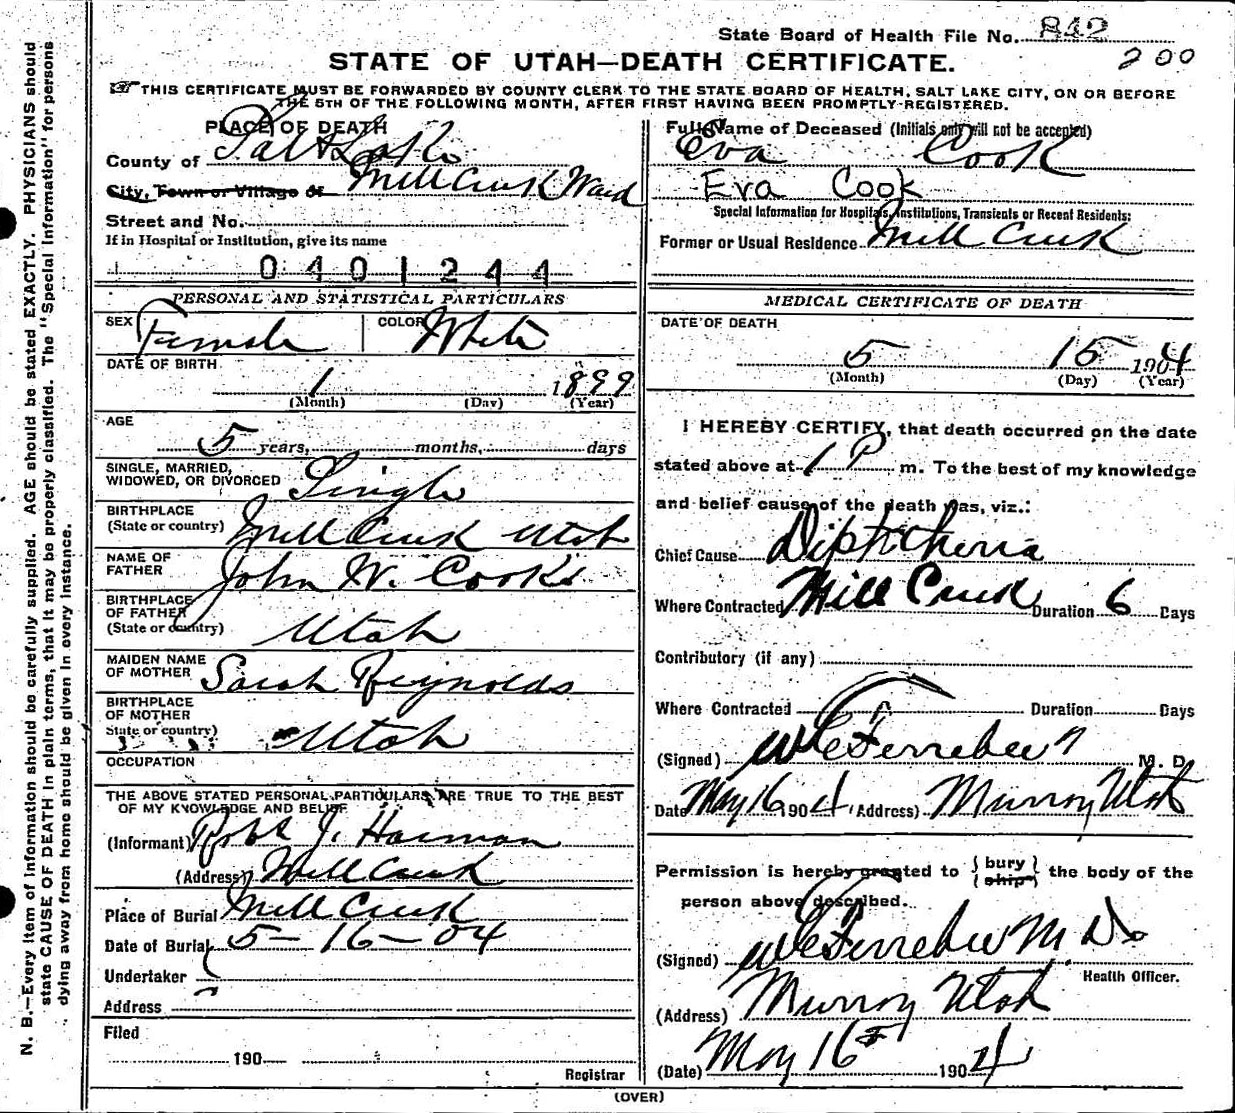 State Board of Health File No. 842
200
STATE OF UTAH—DEATH CERTIFICATE.
THIS CERTIFICATE MUST BE FORWARDED BY COUNTY CLERK TO THE STATE BOARD OF HEALTH, SALT LAKE CITY, ON OR BEFORE
THE 5TH OF THE FOLLOWING MONTH, AFTER FIRST HAVING BEEN PROMPTLY REGISTERED.
PLACE OF DEATH
County of Salt Lake
City, Town or Village of Mill Creek Ward
Street and No.
If in Hospital or Institution, give its name
0401244
PERSONAL AND STATISTICAL PARTICULARS
SEX Female COLOR White
DATE OF BIRTH
1 1899
(Month) (Day) (Year)
AGE
5 years, months, days
SINGLE, MARRIED,
WIDOWED, OR DIVORCED Single
BIRTHPLACE
(State or country) Mill Creek Utah
NAME OF
FATHER John W. Cook
BIRTHPLACE
OF FATHER
(State or country) Utah
MAIDEN NAME
OF MOTHER Sarah Reynolds
BIRTHPLACE
OF MOTHER
State or country) Utah
OCCUPATION
THE ABOVE STATED PERSONAL PARTICULARS ARE TRUE TO THE BEST
OF MY KNOWLEDGE AND BELIEF
(Informant) Robt J. Harman
(Address) Mill Creek
Place of Burial Mill Creek
Date of Burial 5-16-04
Undertaker
Address
Filed
190
Registrar
Full Name of Deceased (Initials only will not be accepted)
Eva Cook
Eva Cook
Special Information for Hospitals, Institutions, Transients or Recent Residents:
Former or Usual Residence Mill Creek
MEDICAL CERTIFICATE OF DEATH
DATE OF DEATH
5 15 1904
(Month) (Day) (Year)
I HEREBY CERTIFY, that death occurred on the date
stated above at 1 P m. To the best of my knowledge
and belief cause of the death was, viz.:
Chief Cause Diptheria
Where Contracted Mill Creek Duration 6 Days
Contributory (if any)
Where Contracted Duration Days
(Signed) W C Ferrebee M. D.
Date May 16 1904 (Address) Murray Utah
Permission is hereby granted to {bury} {ship} the body of the
person above described.
(Signed) W C Ferrebee M. D.
Health Officer.
(Address) Murray Utah
(Date) May 16th 1904
(OVER)
N. B.—Every item of information should be carefully supplied. AGE should be stated EXACTLY. PHYSICIANS should
state CAUSE OF DEATH in plain terms, that it may be properly classified. The "Special Information" for persons
dying away from home should be given in every instance.